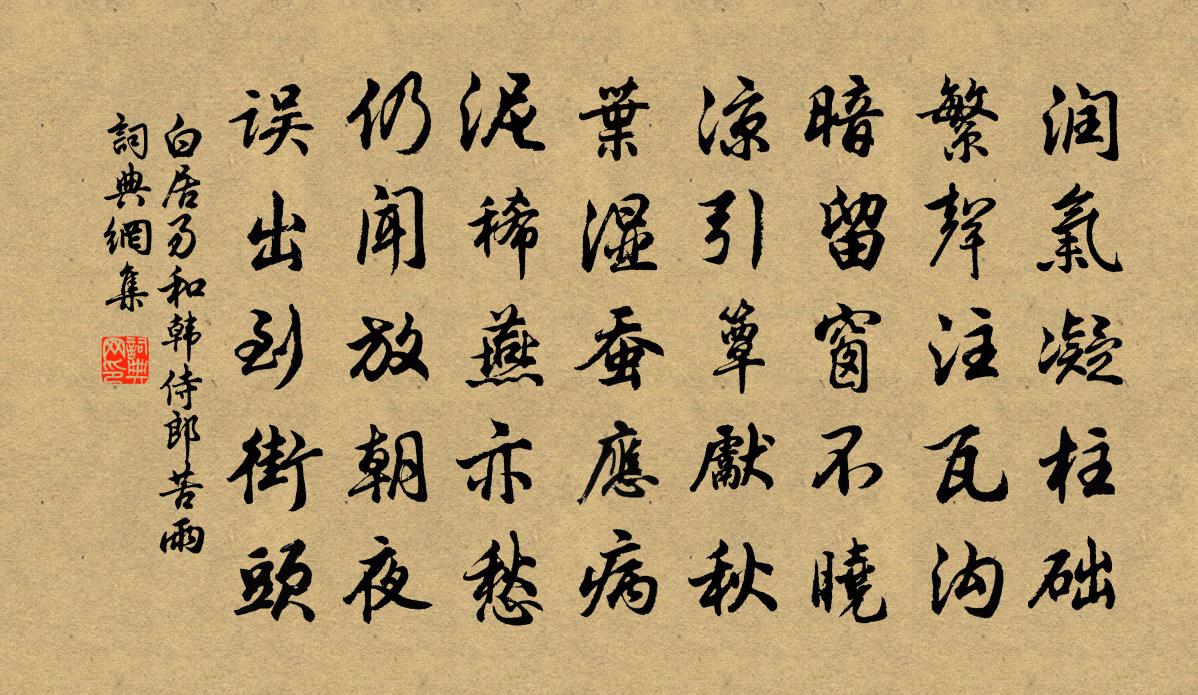 润氣凝柱础
繁聲注瓦沟
暗留窗不曉
凉引簟獻秋
葉湿蚕應病
泥稀燕亦愁
仍闻放朝夜
误出到街頭
白居易和韩侍郎苦雨
詞典網集
詞典网印